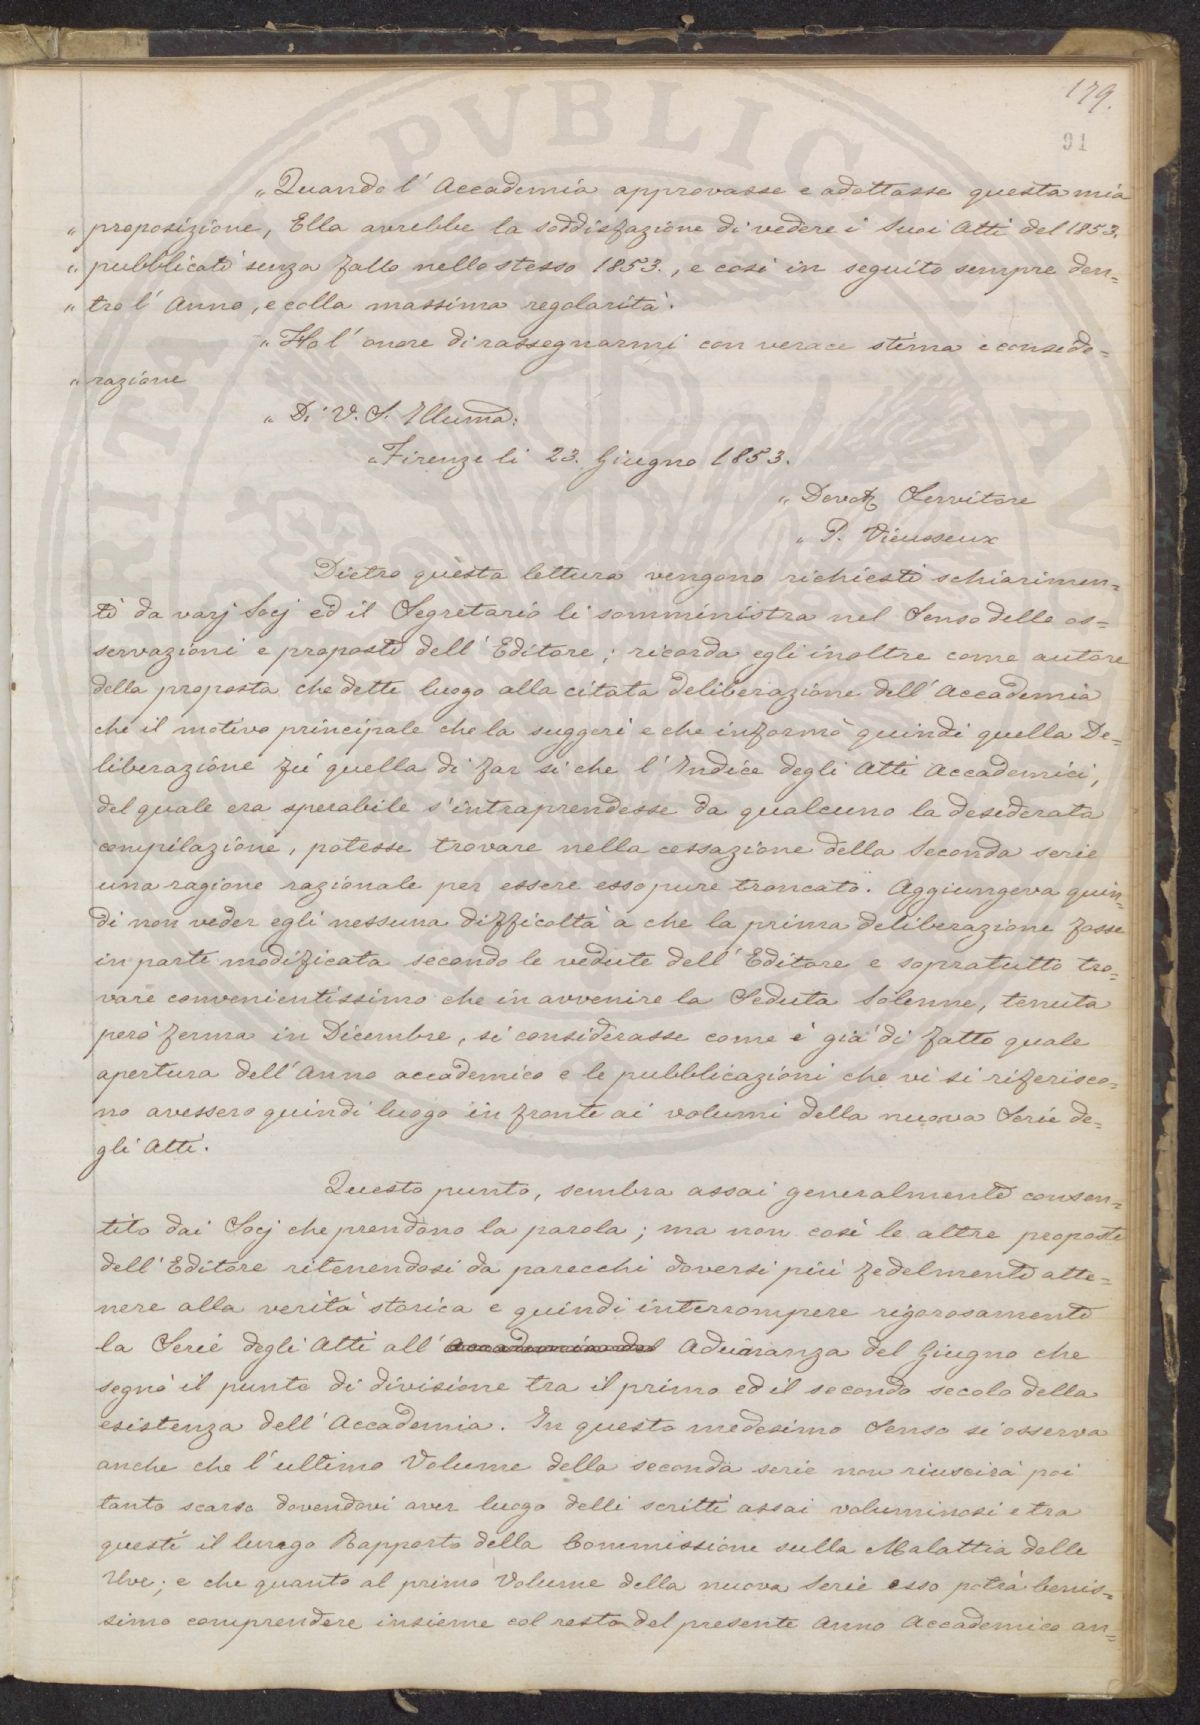 179.
91
„ Quando l'Accademia approvasse e adottasse questa mia
„ proposizione, Ella avrebbe la soddisfazione di vedere i Suoi Atti del 1853.
„ pubblicati senza fallo nello stesso 1853., e così in seguito sempre den=
„ tro l'Anno, e colla massima regolarità.
„ Ho l'onore di rassegnarmi con verace stima e conside=
„ razione
„ Di V. S. Illuma:
„ Firenze li 23. Giugno 1853.
„ Devot. Servitore
„ P. Vieusseux
Dietro questa lettura vengono richiesti schiarimen=
ti da varj Socj ed il Segretario li somministra nel Senso delle os=
servazioni e proposti dell'Editore; ricorda egli inoltre come autore
della proposta che dette luogo alla citata deliberazione dell'Accademia
che il motivo principale che la suggerì e che informò quindi quella De=
liberazione fù quella di far si che l'Indice degli Atti Accademici,
del quale era sperabile s'intraprendesse da qualcuno la desiderata
compilazione, potesse trovare nella cessazione della Seconda serie
una ragione razionale per essere esso pure troncato. Aggiungeva quin=
di non veder egli nessuna difficoltà a che la prima deliberazione fosse
in parte modificata secondo le vedute dell'Editore e sopratutto tro=
vare convenientissimo che in avvenire la Seduta Solenne, tenuta
però ferma in Dicembre, si considerasse come è già di fatto quale
apertura dell'Anno accademico e le pubblicazioni che vi si riferisco=
no avessero quindi luogo in fronte ai volumi della nuova Serie de=
gli Atti.
Questo punto, sembra assai generalmente consen=
tito dai Socj che prendono la parola; ma non così le altre proposte
dell'Editore ritenendosi da parecchi doversi più fedelmente atte=
nere alla verità storica e quindi interrompere rigorosamente
la Serie degli Atti all'Accademia del Adunanza del Giugno che
segnò il punto di divisione tra il primo ed il secondo secolo della
esistenza dell'Accademia. In questo medesimo Senso si osserva
anche che l'ultimo Volume della seconda serie non riuscirà poi
tanto scarso dovendovi aver luogo delli scritti assai voluminosi e tra
questi il lungo Rapporto della Commissione sulla Malattia delle
Uve; e che quanto al primo Volume della nuova Serie esso potrà benis=
simo comprendere insieme col resto del presente Anno Accademico an=